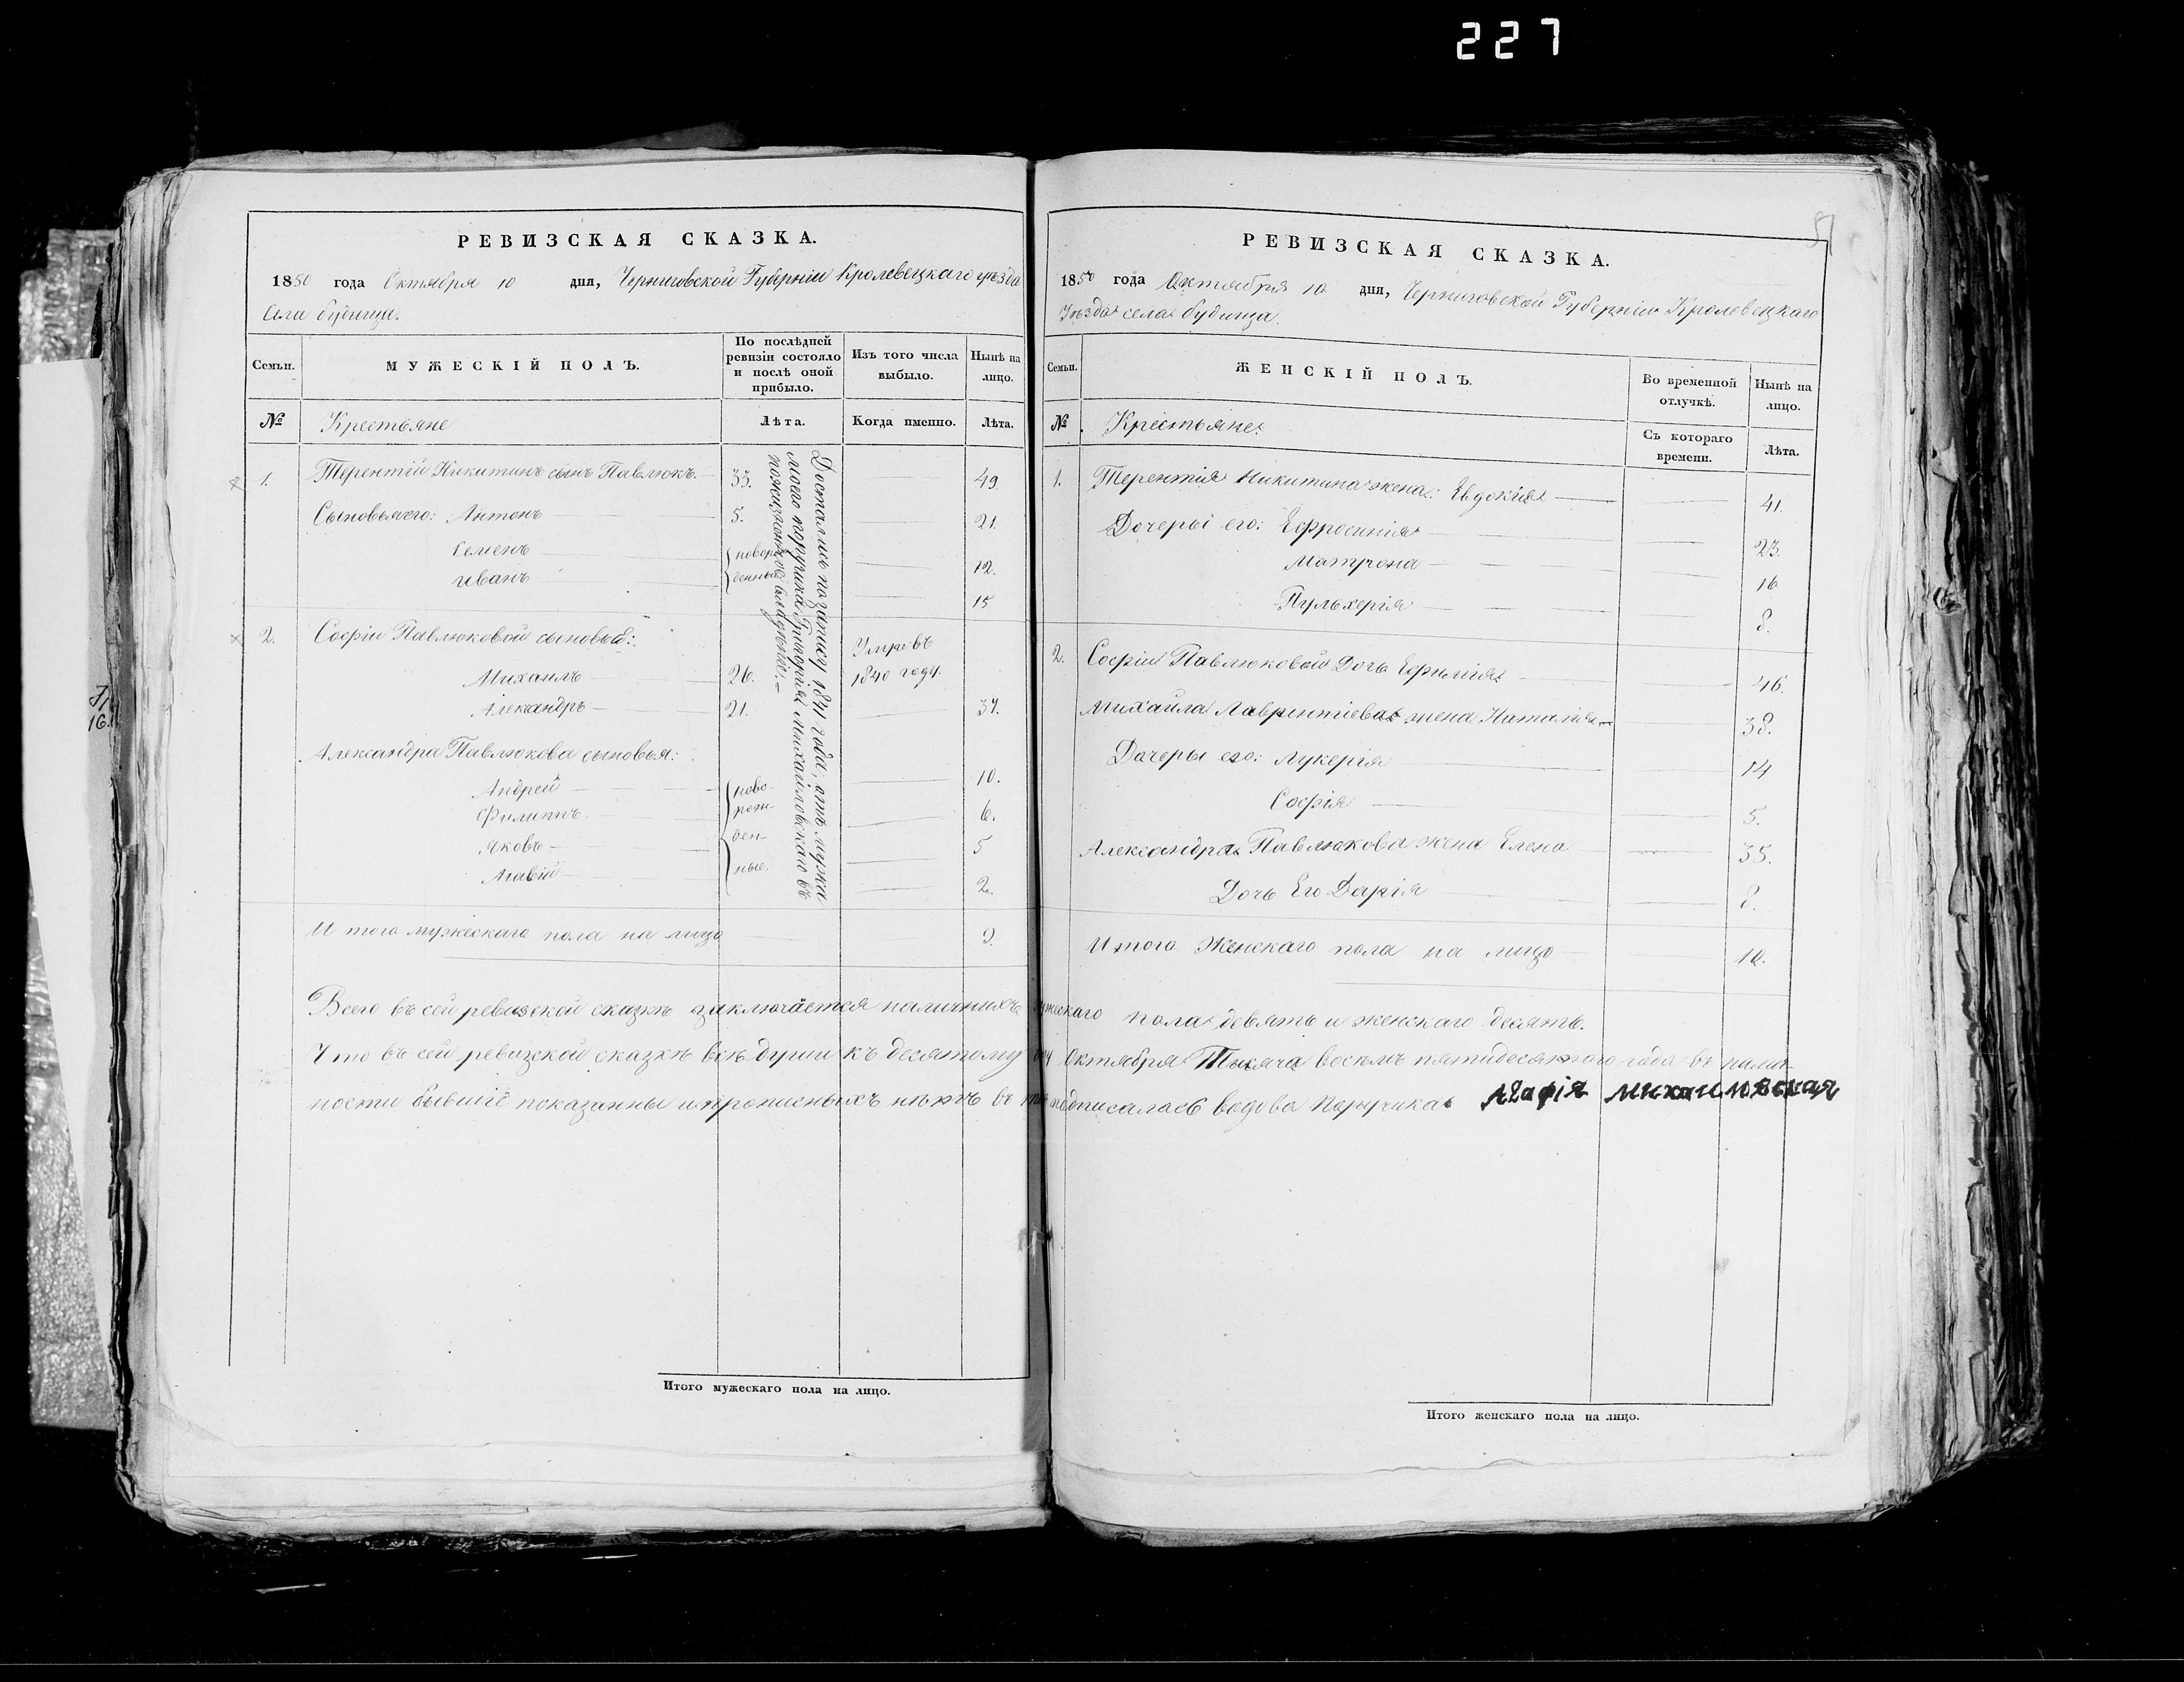 227
РЕВИЗСКАЯ СКАЗКА.
1850 года Октября 10 дня, Черниговской Губерніи Кролевецкаго уѣзда
Села будища.
Семьи.
МУЖЕСКІЙ ПОЛЪ.
По послѣдней ревизіи состояло и послѣ оной прибыло.
Изъ того числа выбыло.
Нынѣ на лицо.
№
Крестьяне
Лѣта.
Когда именно.
Лѣта.
1. Терентій Никитинъ сынъ Павлюкъ. 33. 49.
Сыновья его: Антонъ 5. 21.
Семенъ 12.
Иванъ 15
{новорож
денные
2. Софіи Павлюковой сыновья:
Михаилъ 26. Умре въ 1840 году.
Александръ 21. 37.
Александра Павлюкова сыновья:
Андрей 10.
Филиппъ 6.
Яковъ 5
2.
{ново-
рож-
ден-
ные.
Достались по запису 1841 года, отъ мужа
моего поручика Григорія Михайловскаго въ
пожизненное владѣніе.
Итого мужескаго пола на лицо 9.
Итого мужескаго пола на лицо.
РЕВИЗСКАЯ СКАЗКА.
1850 года Октября 10 дня, Черниговской Губерніи Кролевецкаго
Уѣзда села будища.
Семьи.
ЖЕНСКІЙ ПОЛЪ.
Во временной отлучкѣ.
Нынѣ на лицо.
№
Крестьяне.
Съ котораго времени.
Лѣта.
1. Терентія Никитина жена: Евдокія 41.
Дочери его: Ефросинія 23.
Матрона 16
Пульхерія 8.
2. Софіи Павлюковой дочь Ефимія 46.
Михайла Лаврентіева жена Наталія 38.
Дочери его: Лукерія 14
Софія 5.
Александра Павлюкова жена Елена 35.
Дочь Его Дарія 8.
Итого Женскаго пола на лицо 10.
Всего въ сей ревизской сказкѣ заключается наличныхъ мужскаго пола девять и женскаго десять.
Что въ сей ревизской сказкѣ всѣ души къ десятому Октября Тысяча восемъ пятидесятого года въ налич-
ности бывшіе показанны и прописныхъ нѣтъ въ подписалась вдова Поручика Михаиловская
Итого женскаго пола на лицо.